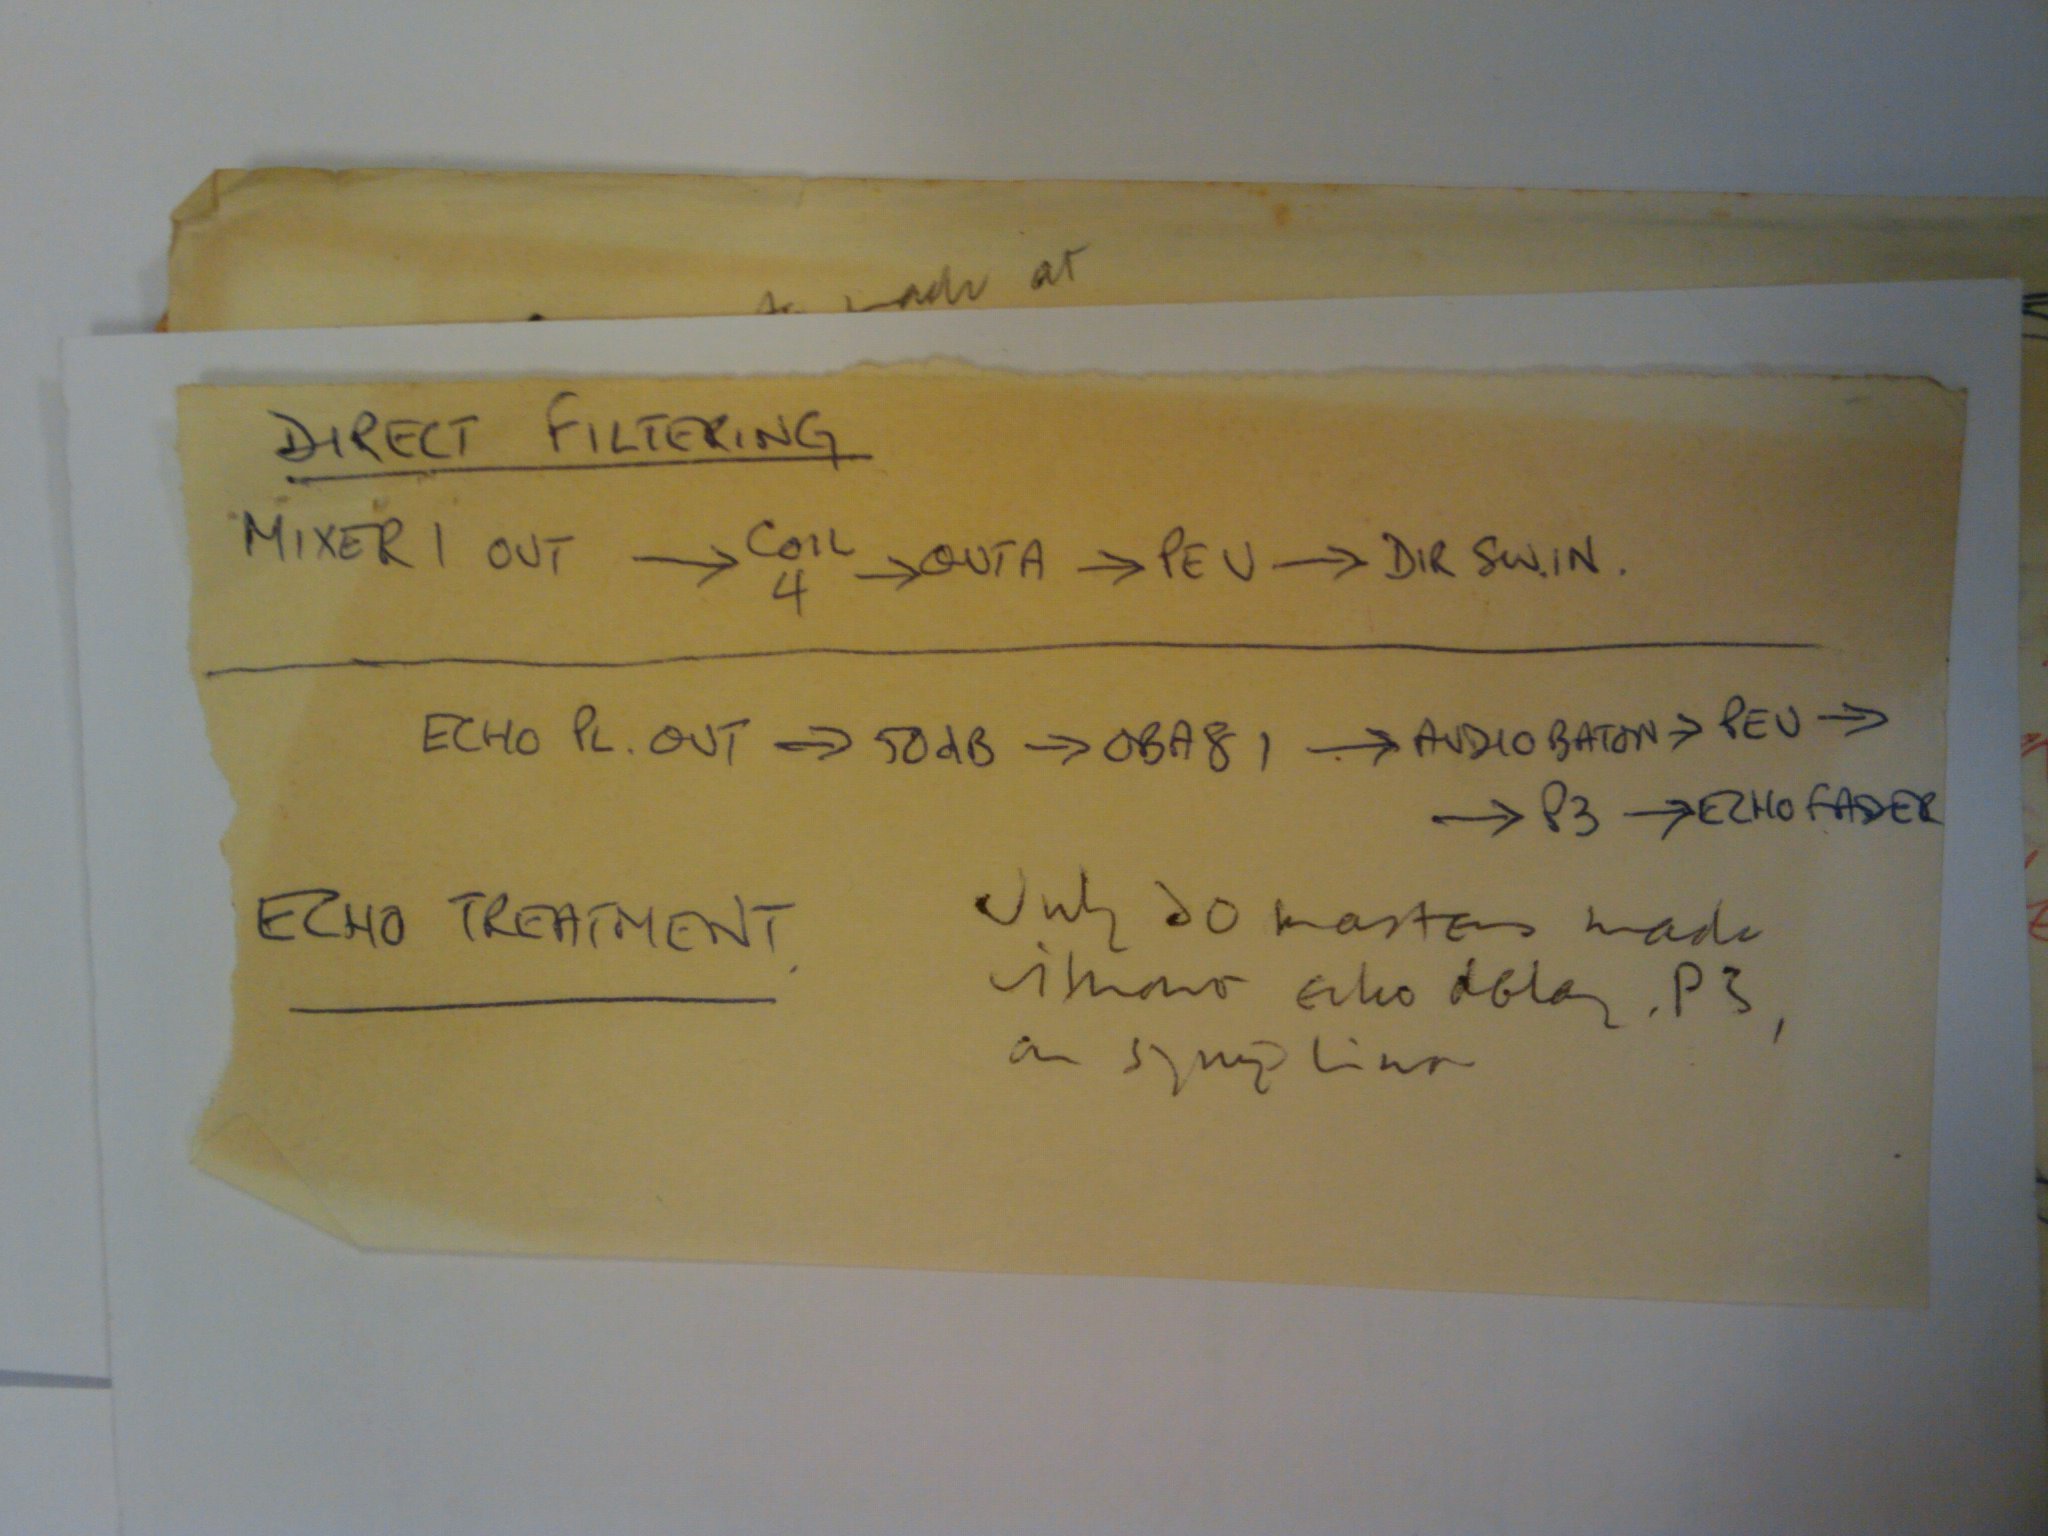 made at
DIRECT FILTERING
MIXER 1 OUT → COIL 4 → OUT A → PEU → DIR SW. IN.
ECHO PL. OUT → 50dB → OBA8 1 → AUDIO BATON → PEU →
→ P3 → ECHO FADER
ECHO TREATMENT.
July 20 masters made
without echo delay. P3,
on symp